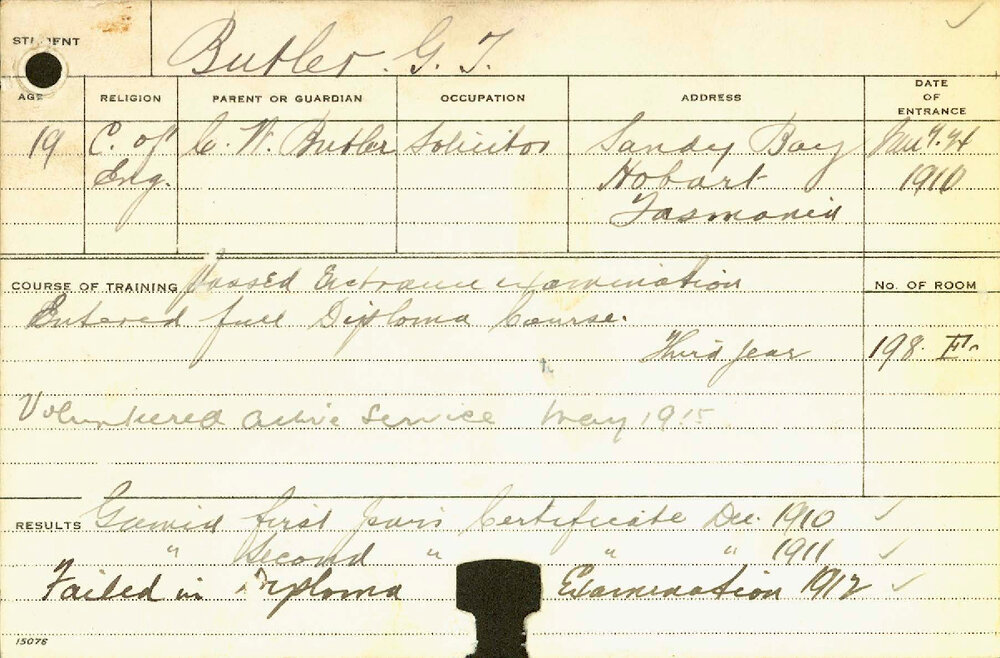 STUDENT Butler. G. T.
AGE RELIGION PARENT OR GUARDIAN OCCUPATION ADDRESS DATE OF ENTRANCE
19 C. of C. W. Butler Solicitor Sandy Bay
Eng. Hobart 1910
Tasmania
COURSE OF TRAINING Passed Entrance examination No. OF ROOM
Entered full Diploma Course.
Third year 198. F.
Volunteered Active Service May 1915
RESULTS Gained first years Certificate Dec. 1910 ✓
" Second " " " 1911 ✓
Failed in Diploma Examination 1912 ✓
15076